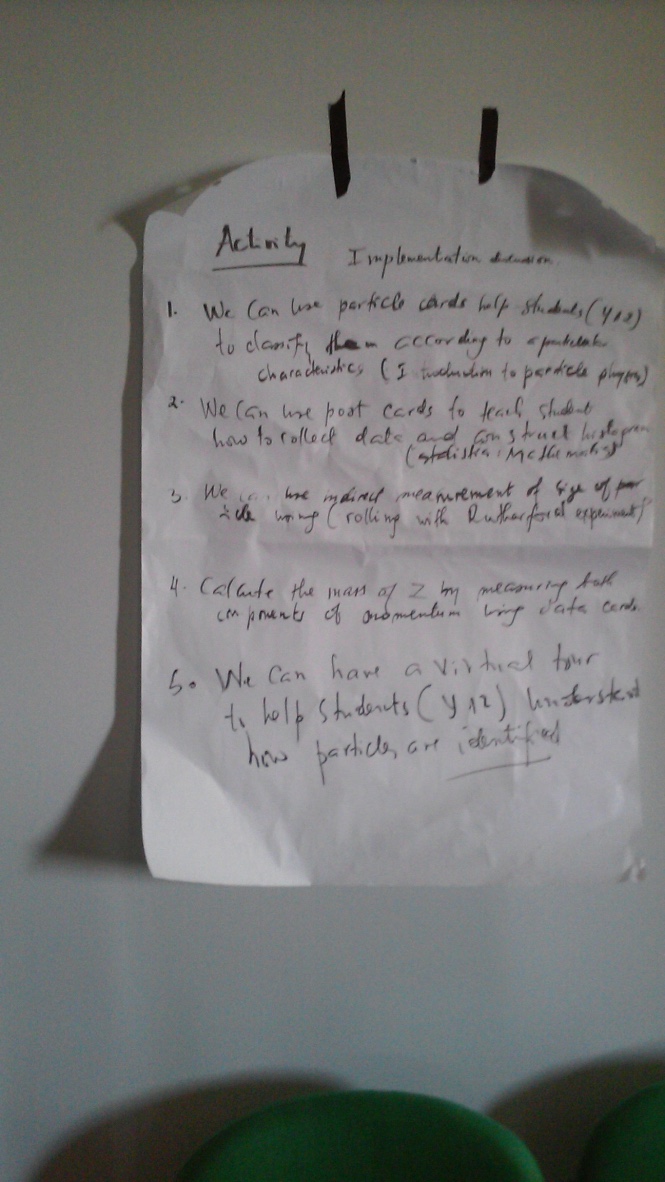 Activity Implementation discussion
1. We Can use particle cards help students (Y12)
to classify them according to a particular
characteristics (Introduction to particle physics)
2. We can use post cards to teach student
how to collect data and construct histogram
(statistics, Mathematics)
3. We can use indirect measurement of size of par
ticle using (rolling with Rutherford experiment)
4. Calculate the mass of Z by measuring both
components of momentum using data cards
5. We Can have a virtual tour
to help students (Y12) understand
how particles are identified